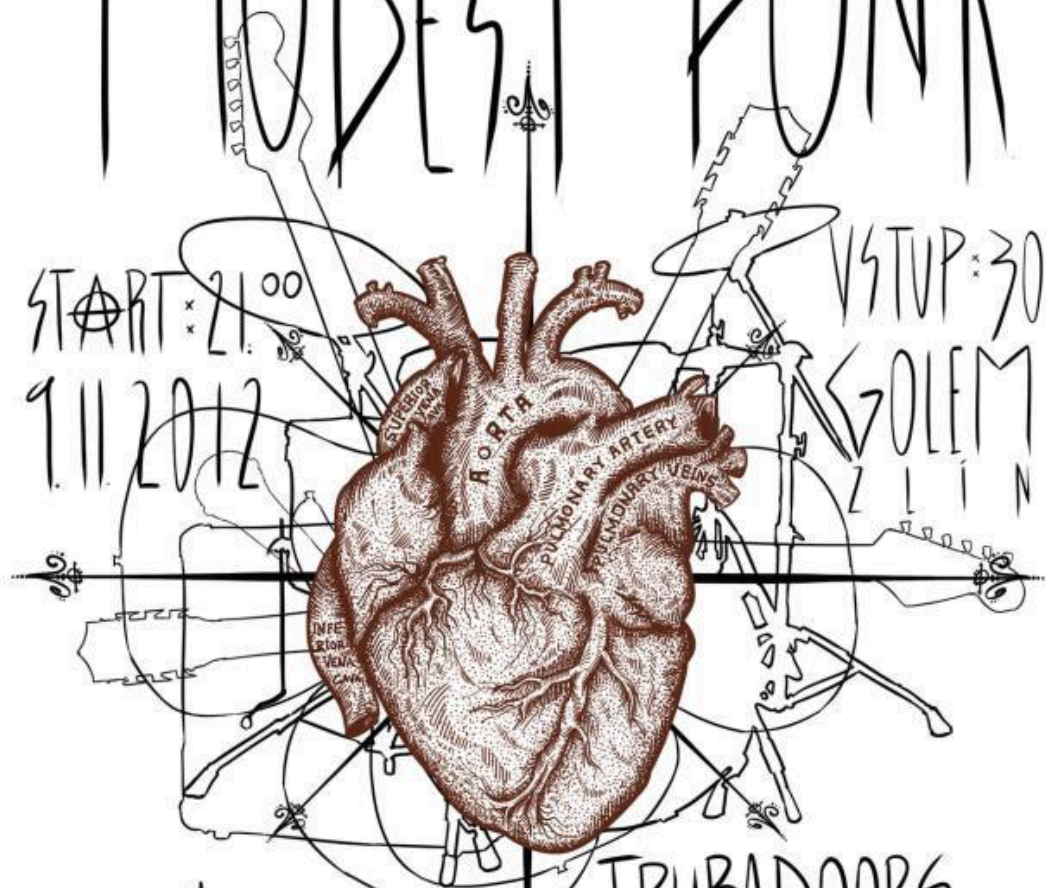 MODEST PUNK
START: 21:00
9.11.2012
VSTUP: 30
GOLEM
ZLÍN
SUPERIOR
VENA
CAVA
AORTA
PULMONARY ARTERY
PULMONARY VEINS
INFE
RIOR
VENA
CAVA
TRUBADOORS